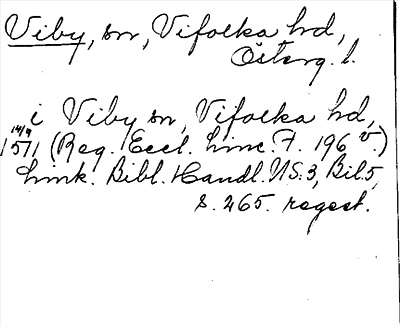 Viby, sn, Vifolka hd,
Österg. l.
i Viby sn, Vifolka hd,
14/9
1571 (Reg. Eccl. Linc. F. 196 v.)
Link. Bibl. Handl. NS. 3, Bil. 5,
s. 265. regest.